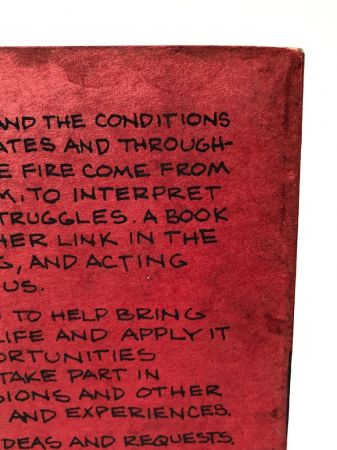 AND THE CONDITIONS
ATES AND THROUGH-
E FIRE COME FROM
M, TO INTERPRET
TRUGGLES. A BOOK
HER LINK IN THE
G, AND ACTING
US.
TO HELP BRING
LIFE AND APPLY IT
ORTUNITIES
TAKE PART IN
SIONS AND OTHER
AND EXPERIENCES.
IDEAS AND REQUESTS.